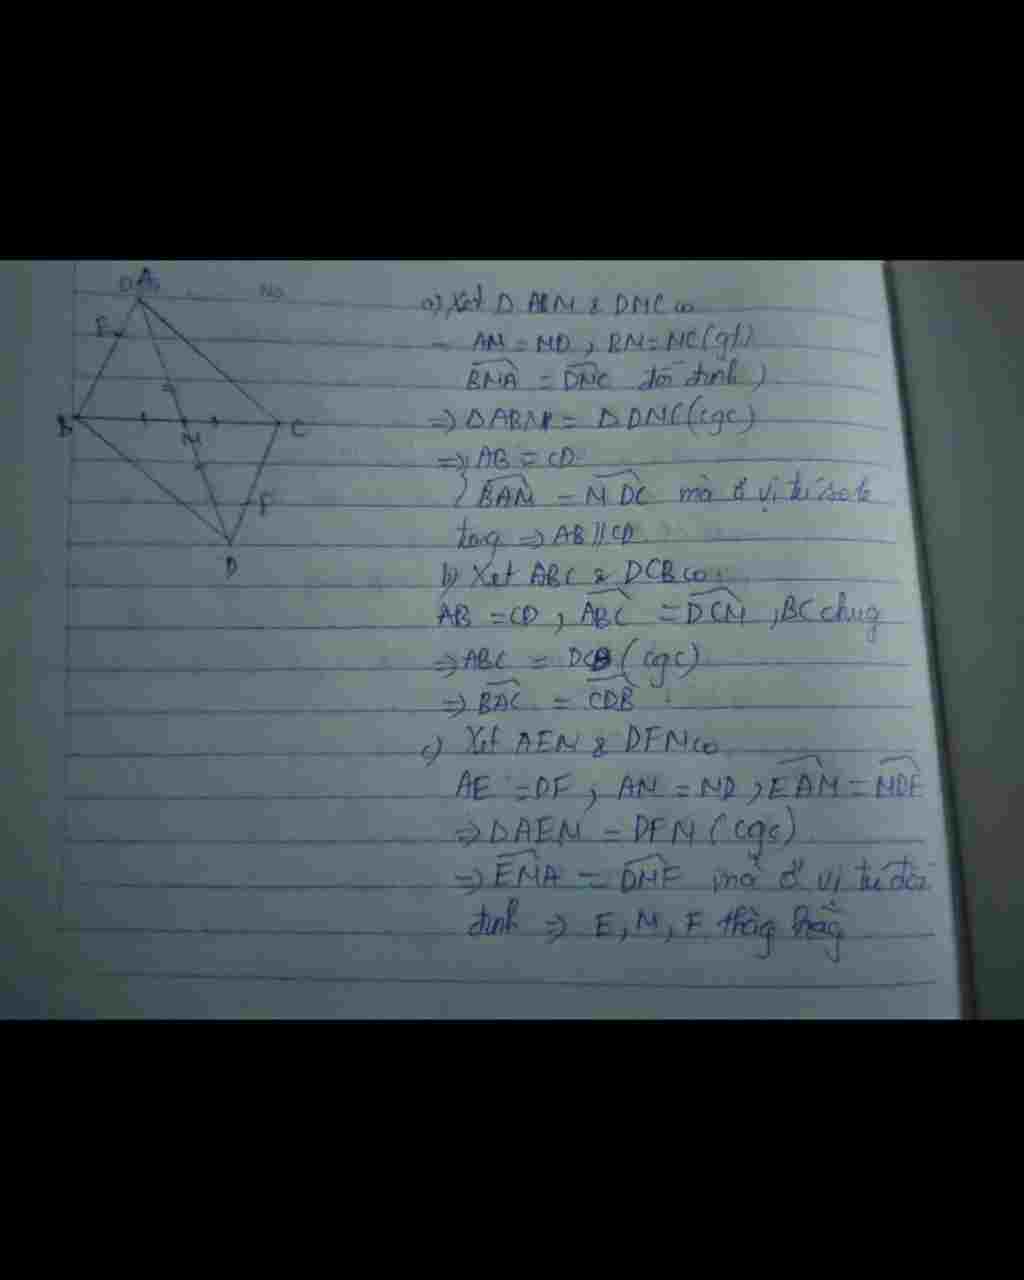 A
No
E
B
M
C
F
D
a) Xét Δ ABM & DMC có
AM = MD, BM = MC (gt)
BMA = DMC đối đỉnh)
=> Δ ABM = Δ DMC (cgc)
=> AB = CD
BAM = MDC mà ở vị trí so le
trog => AB // CD
b) Xét ABC & DCB có:
AB = CD, ABC = DCM, BC chug
=> ABC = DCB (cgc)
=> BAC = CDB
c) Xét AEM & DFM có
AE = DF, AM = MD, EAM = MDF
=> Δ AEM = DFM (cgc)
=> EMA = DMF mà ở vị trí đối
đỉnh => E, M, F thẳg hàg